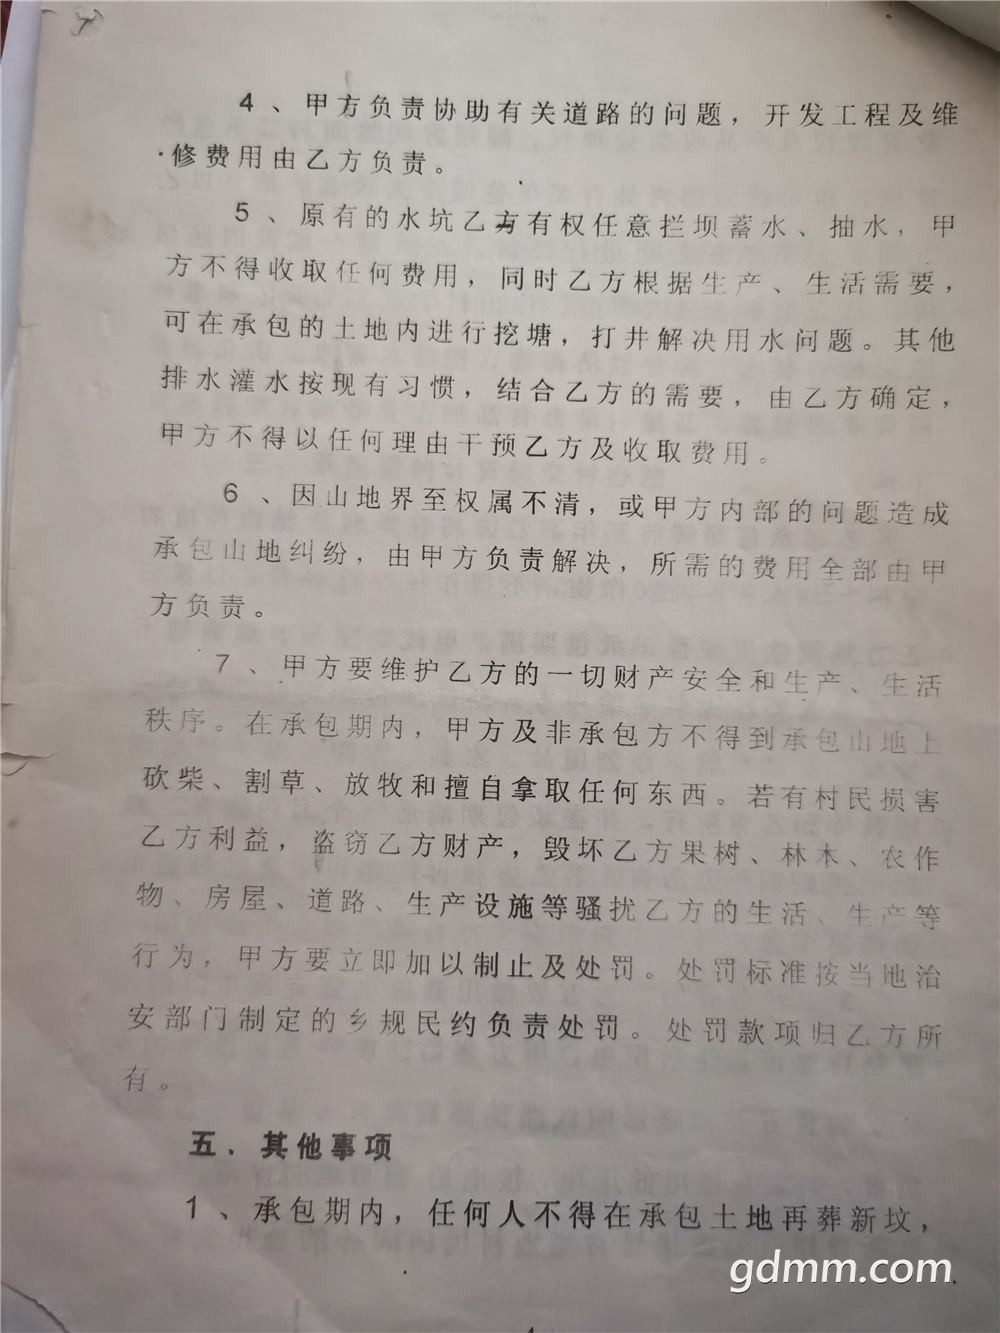 4、甲方负责协助有关道路的问题，开发工程及维
修费用由乙方负责。
5、原有的水坑乙方有权任意拦坝蓄水、抽水，甲
方不得收取任何费用，同时乙方根据生产、生活需要，
可在承包的土地内进行挖塘，打井解决用水问题。其他
排水灌水按现有习惯，结合乙方的需要，由乙方确定，
甲方不得以任何理由干预乙方及收取费用。
6、因山地界至权属不清，或甲方内部的问题造成
承包山地纠纷，由甲方负责解决，所需的费用全部由甲
方负责。
7、甲方要维护乙方的一切财产安全和生产、生活
秩序。在承包期内，甲方及非承包方不得到承包山地上
砍柴、割草、放牧和擅自拿取任何东西。若有村民损害
乙方利益，盗窃乙方财产，毁坏乙方果树、林木、农作
物、房屋、道路、生产设施等骚扰乙方的生活、生产等
行为，甲方要立即加以制止及处罚。处罚标准按当地治
安部门制定的乡规民约负责处罚。处罚款项归乙方所
有。
五．其他事项
1、承包期内，任何人不得在承包土地再葬新坟，
gdmm.com